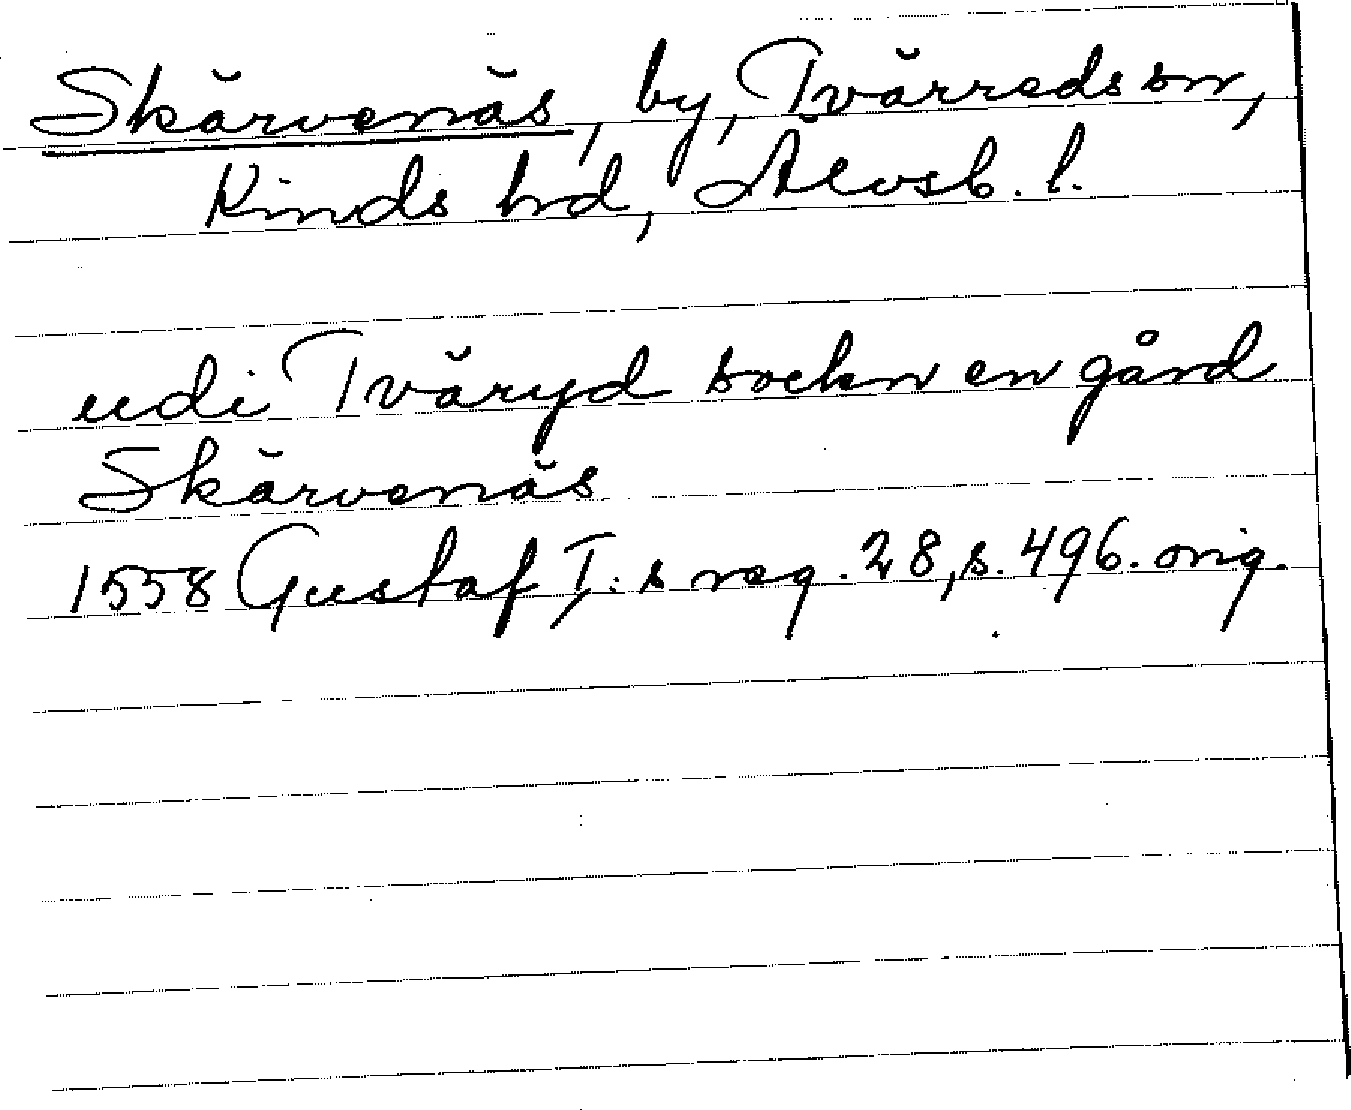 Skärvenäs, by, Tvärreds sn,
Kinds hd, Älvsb. l.
udi Tväryd sockn en gård
Skärvenäs
1558 Gustaf I:s reg. 28, s. 496. orig.